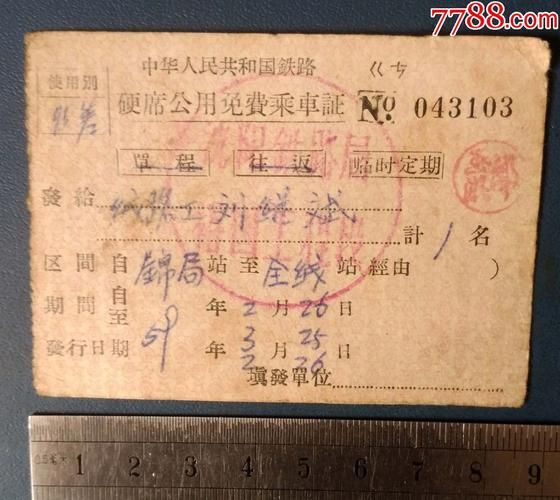 7788.com
中华人民共和国鉄路
ㄍㄘ
使用別
硬席公用免費乘車証 No. 043103
單程 往返 臨时定期
發給 刘继斌
計 1 名
区間 自 錦局 站 至 全线 站 經由 )
期間 自 至 59 年 2 月 26 日
年 3 月 25 日
發行日期 2 26
塡發單位
0.5毫米 1 2 3 4 5 6 7 8 9